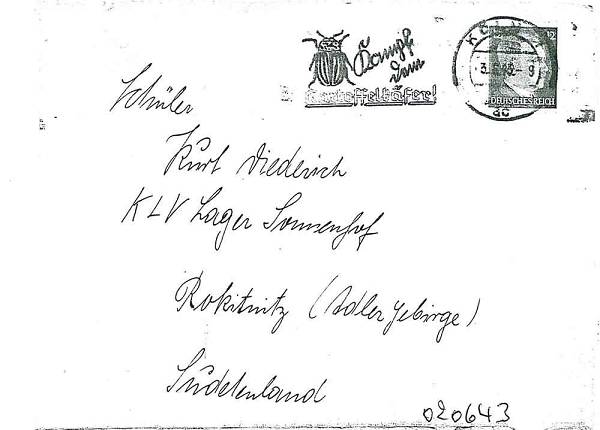 Kampf
dem
Kartoffelkäfer!
KÖLN 1
3.6.43.-9
ac
12
DEUTSCHES REICH
Schüler
Kurt Diederich
KLV Lager Sonnenhof
Rokitnitz (Adlergebirge)
Sudetenland
020643